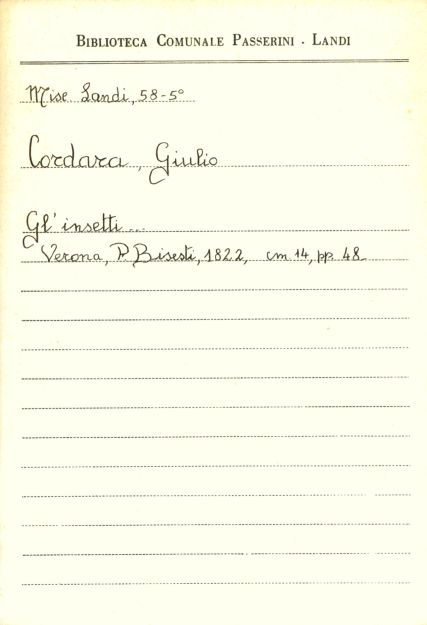 BIBLIOTECA COMUNALE PASSERINI - LANDI
Misc. Landi, 58-5°
Cordara, Giulio
Gl'insetti...
Verona, P. Bisesti, 1822, cm 14, pp. 48